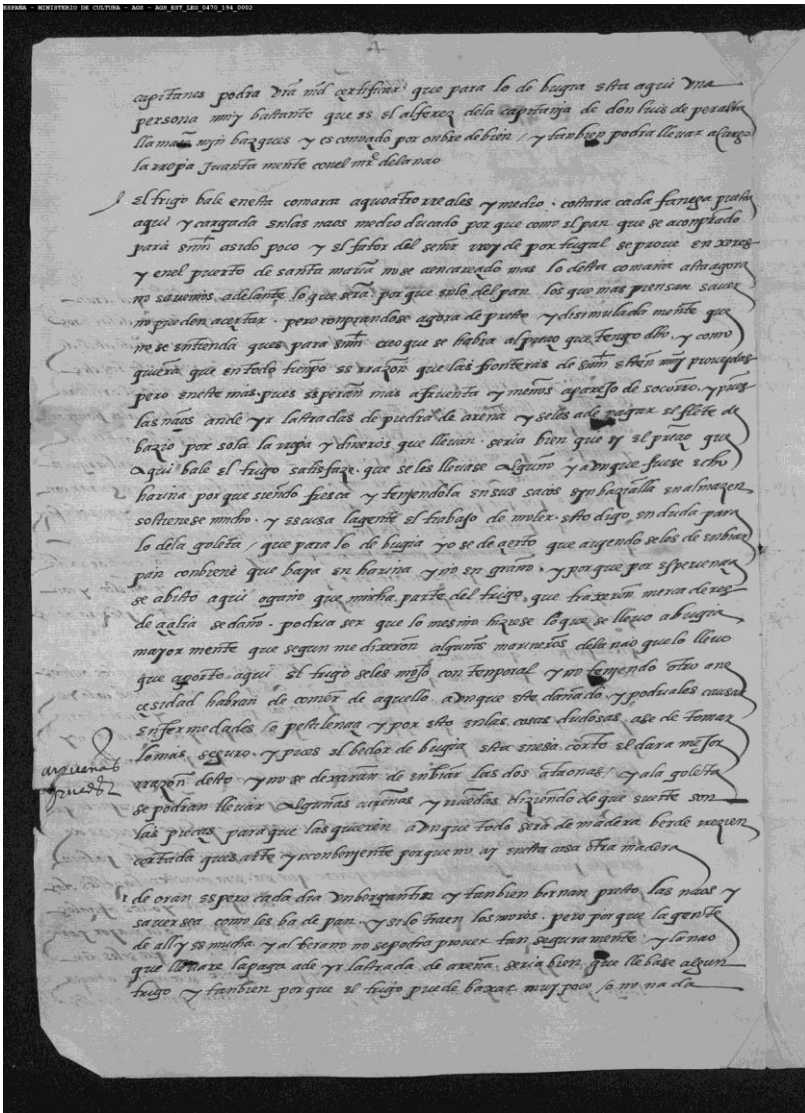 ESPAÑA - MINISTERIO DE CULTURA - AGS - AGS_EST_LEG_0470_194_0002
capitanes podra vrã md certificar que para lo de bugia esta aqui vna
persona muy bastante que es el alferez dela capitanja de don luis de peralta
llamado mjn bazques y es contado por onbre de bien / y tanbien podra llevar a cargo
la rropa Juanta mente conel mrẽ dela nao
El trigo bale enesta comarca a quatro rreales y medio . costara cada fanega puesta
aqui y cargada enlas naos medio ducado por que como el pan que se a conprado
para smt a sido poco y el fator del señor rrey de portugal se provee en xerez
y enel puerto de santa maria no se a encareçido mas lo desta comarca asta agora
no savemos adelante lo que sera . por que solo del pan los que mas piensan saver
no pueden açertar . pero conprandose agora de presto y disimulada mente que
no se entienda ques para smt creo que se habra al preçio que tengo dho . y como
quiera que en todo tienpo es rrazon que las fronteras de smt esten muy proveydas
pero eneste mas . pues esperan mas afruenta y menos aparejo de socorro . y pues
las naos ande yr lastradas de piedra o de arena y seles a de pagar el flete de
bazio por sola la rropa y dineros que llevan . seria bien que sy el preçio que
aqui bale el trigo satisfaze . que se les llevase alguno y avnque fuese echo
harina porque siendo fresca y teniendola en sus sacos syn bazialla en almazen
sostienese mucho . y escusa la gente el trabajo de moler . esto digo en duda para
lo dela goleta / que para lo de bugia yo se de çierto que aviendo seles de enbiar
pan conbiene que baya en harina y no en grano . y porque por espiriençia
se a bisto aqui ogaño que mucha parte del trigo que traxeron mercaderes
de se daño . podria ser que lo mesmo hiziese lo que se llevo a bugia
mayor mente que segun me dixeron algunos marineros dela nao que lo llevo
que aporto aqui el trigo seles mojo con tenporal y no teniendo otro ne
çesidad habran de comer de aquello . avnque este dañado . y podriales causar
enfermedades / o pestilençia y por esto enlas cosas dudosas . a se de tomar
lo mas seguro . y pues el bedor de bugia esta en esa corte el dara mejor
rrazon desto y no se dexaran de enbiar las dos ataonas / y ala goleta
se podran llevar algunas cureñas y rruedas diziendo de que suerte son
las pieças para que las quieren avnque todo sera de madera berde rrezien
cortada ques arto ynconbiniente porque no ay enesta casa otra madera
de oran espero cada dia vn bergantin y tanbien bernan presto las naos y
saverse a como les ba de pan . y si lo traen los moros . pero porque la gente
de alli es mucha y al berano no se podra proveer tan segura mente y la nao
que llevare la paga a de yr lastrada de arena . seria bien que llebase algun
trigo y tanbien por que el trigo puede baxar muy poco / o no nada